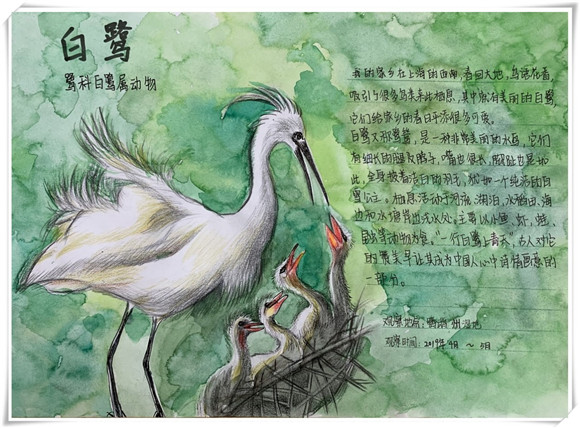 白鹭
鹭科白鹭属动物
我的家乡在上海的西南,春回大地,鸟语花香,
吸引了很多鸟类来此栖息,其中就有美丽的白鹭,
它们给家乡的春日平添很多可爱。
白鹭又称鹭鸶,是一种非常美丽的水鸟,它们
有细长的腿及脖子,嘴也很长,脚趾也是如
此,全身披着洁白的羽毛,犹如一个纯洁的白
雪公主。栖息活动于河流、湖泊、水稻田、海
边和水塘的浅水处。主要以小鱼、虾、蛙、
昆虫等动物为食。"一行白鹭上青天",古人对它
的赞美早让其成为中国人心中诗情画意的
一部分。
观察地点:
观察时间:2019年4月~5月